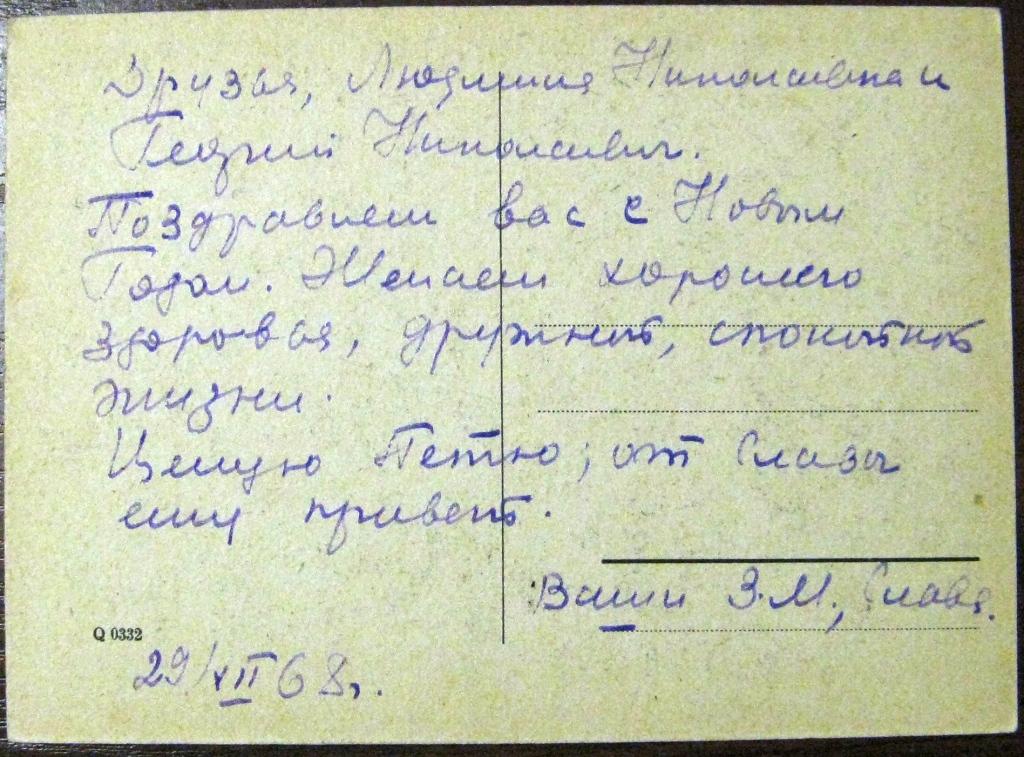 Друзья, Людмила Николаевна и
Георгий Николаевич.
Поздравляем вас с Новым
Годом. Желаем хорошего
здоровья, дружной, спокойной
жизни.
Целую Петю; от Славы
ему привет.
Ваши З.М., Слава.
Q 0332
29/XII 68г.